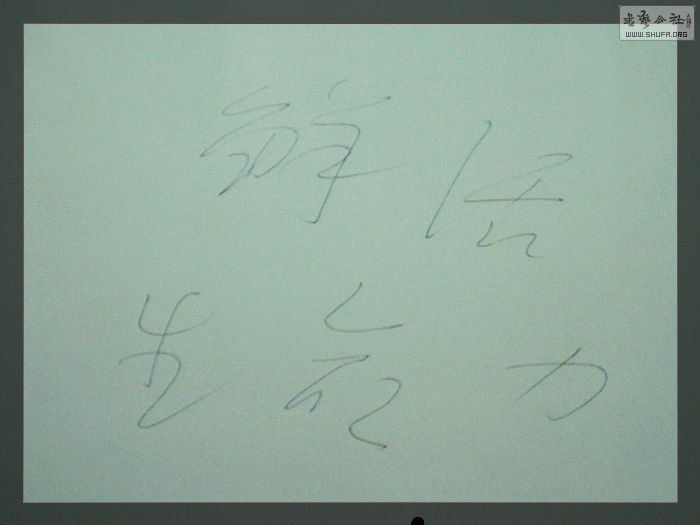 书艺公社
WWW.SHUFA.ORG
鲜活
生命力